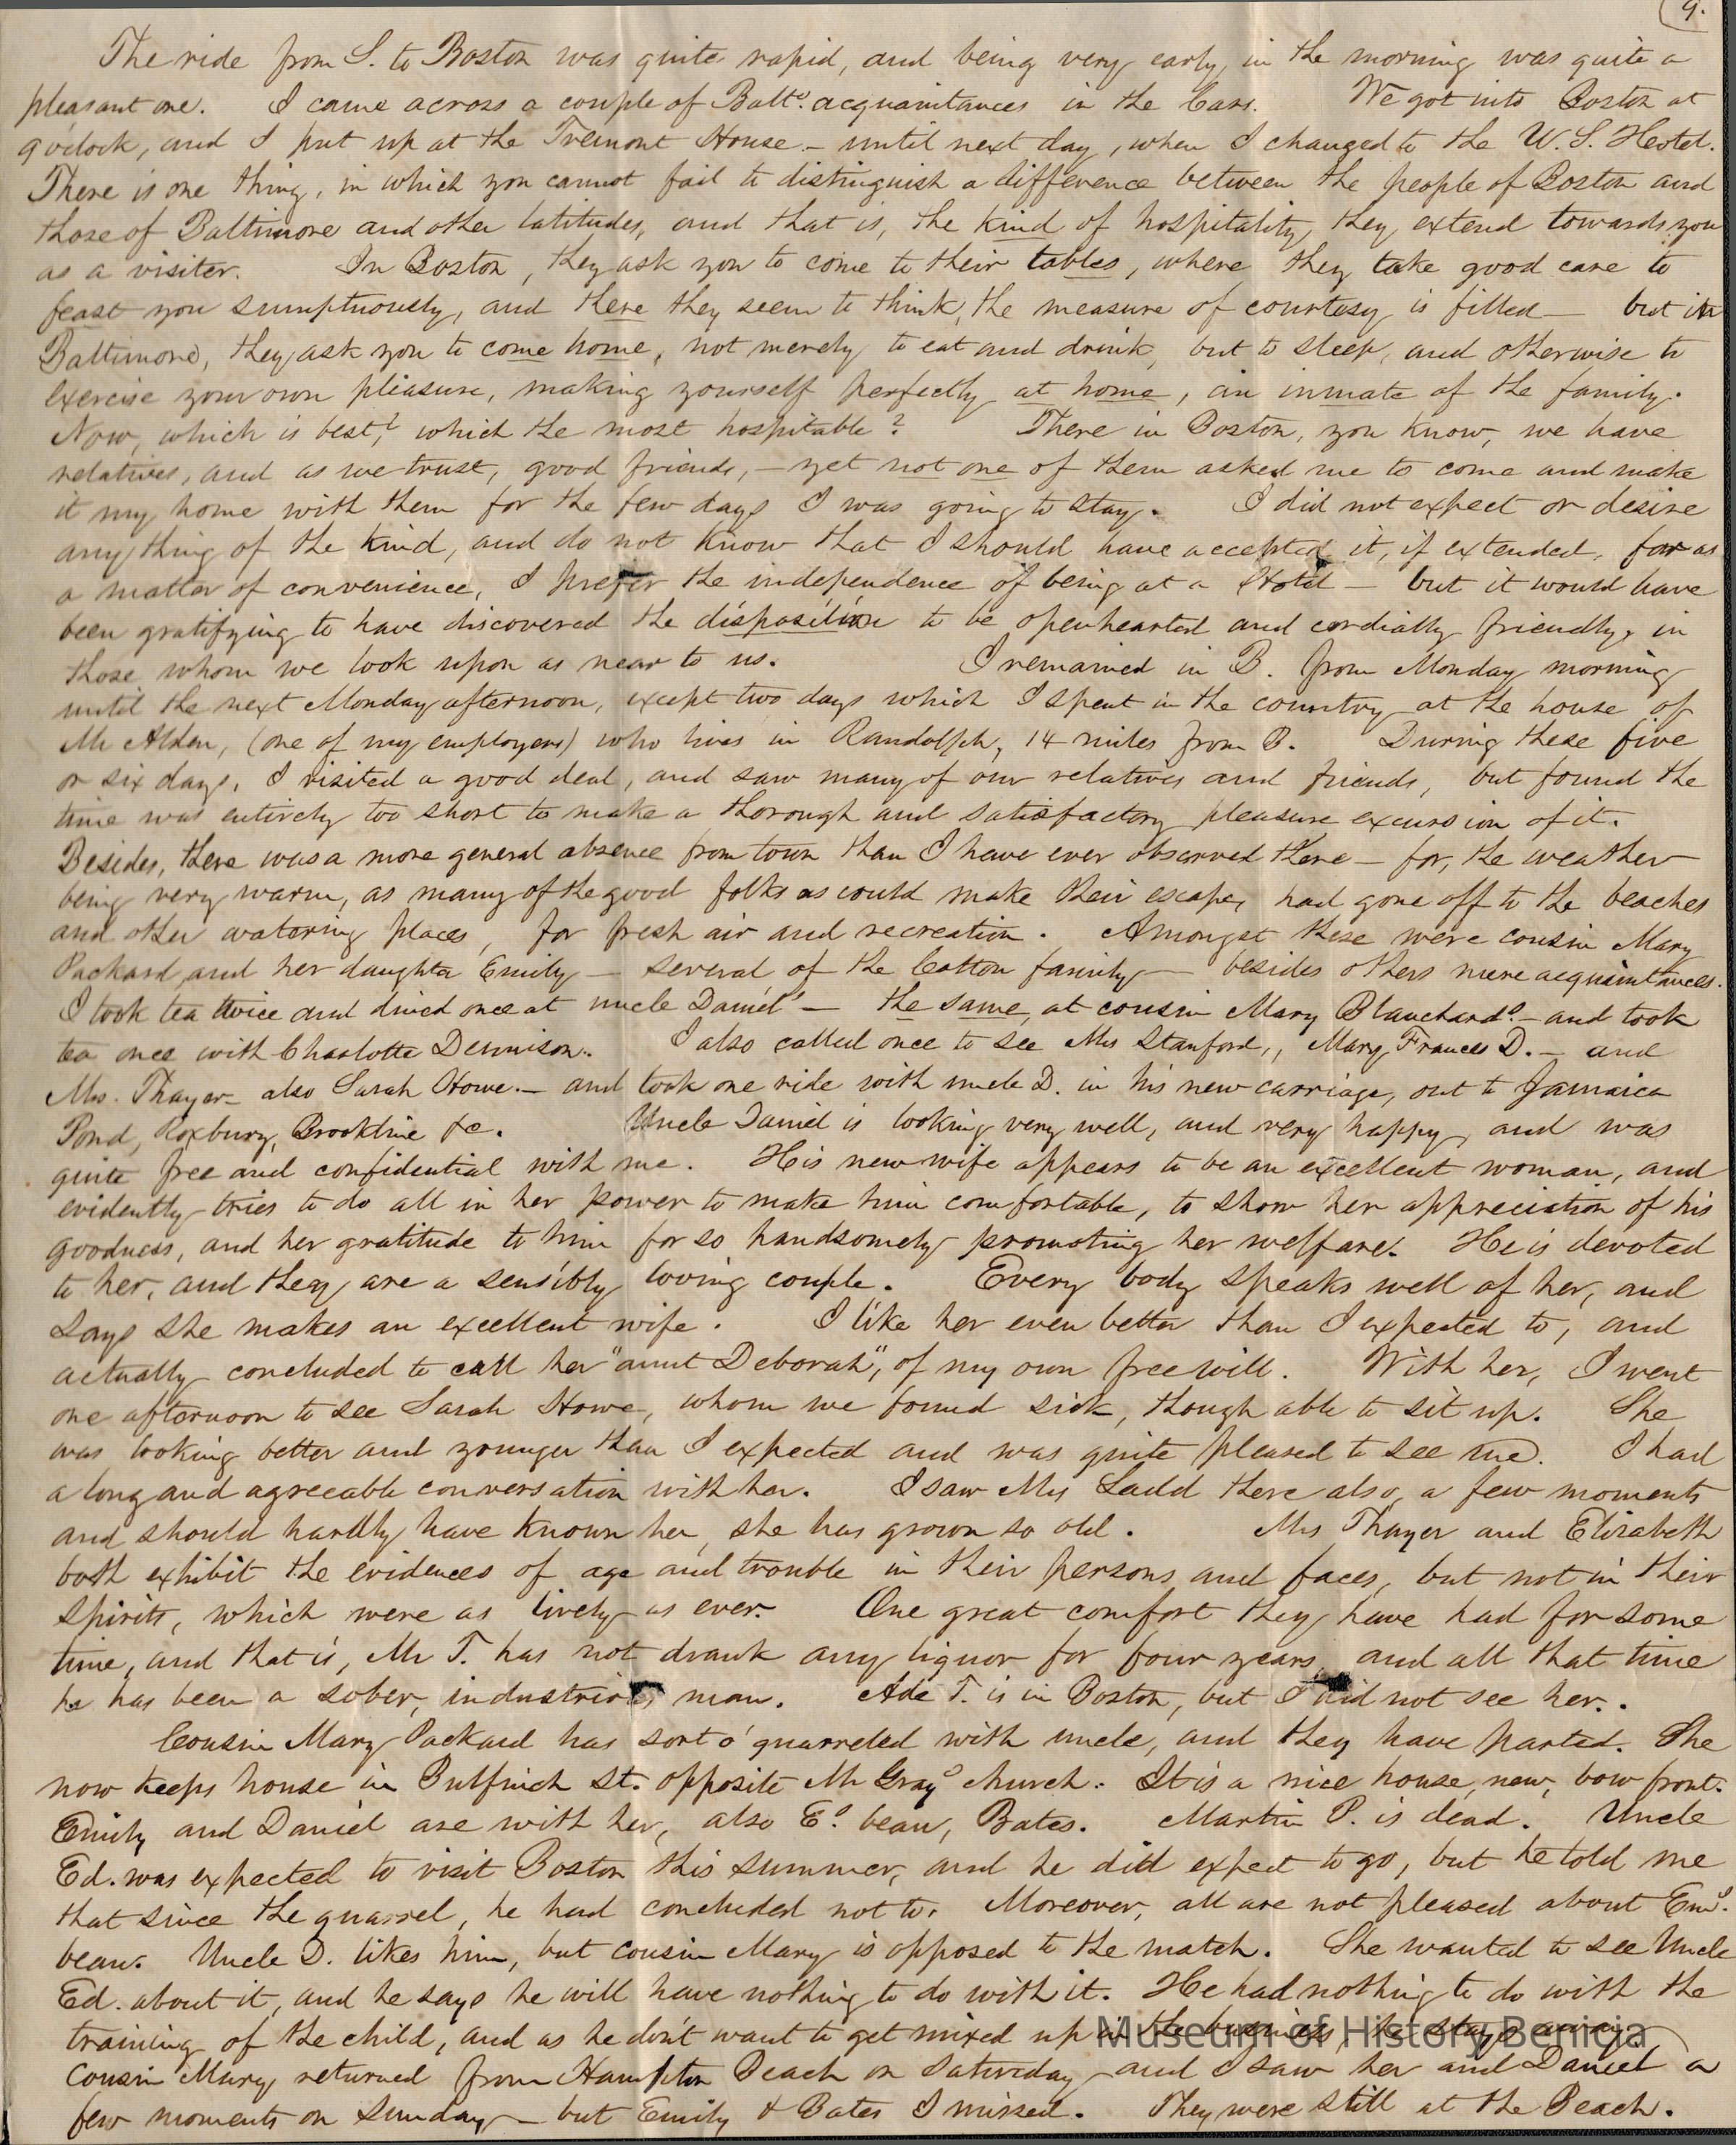 9.
The ride from S. to Boston was quite rapid, and being very early in the morning was quite a
pleasant one. I came across a couple of Balto. acquaintances in the Cars. We got into Boston at
9 o'clock, and I put up at the Tremont House - until next day, when I changed to the U.S. Hotel.
There is one thing, in which you cannot fail to distinguish a difference between the people of Boston and
those of Baltimore and other latitudes, and that is, the kind of hospitality they extend towards you
as a visiter. In Boston, they ask you to come to their tables, where they take good care to
feast you sumptuously, and there they seem to think, the measure of courtesy is filled - but in
Baltimore, they ask you to come home, not merely to eat and drink, but to sleep, and otherwise to
exercise your own pleasure, making yourself perfectly at home, an inmate of the family.
Now, which is best? which the most hospitable? There in Boston, you know, we have
relatives, and as we trust, good friends, - yet not one of them asked me to come and make
it my home with them for the few days I was going to stay. I did not expect or desire
any thing of the kind, and do not know that I should have accepted it, if extended, for as
a matter of convenience, I prefer the independence of being at a Hotel - but it would have
been gratifying to have discovered the disposition to be openhearted and cordially friendly, in
those whom we look upon as near to us. I remained in B. from Monday morning
until the next Monday afternoon, except two days which I spent in the country at the house of
Mr Alden, (one of my employers) who lives in Randolph, 14 miles from B. During these five
or six days, I visited a good deal, and saw many of our relatives and friends, but found the
time was entirely too short to make a thorough and satisfactory pleasure excursion of it.
Besides, there was a more general absence from town than I have ever observed there - for, the weather
being very warm, as many of the good folks as could make their escape, had gone off to the beaches
and other watering places, for fresh air and recreation. Amongst these were cousin Mary
Packard and her daughter Emily - several of the Cotton family - besides others mere acquaintances.
I took tea twice and dined once at uncle Daniels' - the same, at cousin Mary Blanchards - and took
tea once with Charlotte Dennison. I also called once to see Mrs Stanford, Mary Frances D. - and
Mrs. Thayer - also Sarah Howe. - and took one ride with uncle D. in his new carriage, out to Jamaica
Pond, Roxbury, Brookline &c. Uncle Daniel is looking very well, and very happy, and was
quite free and confidential with me. His new wife appears to be an excellent woman, and
evidently tries to do all in her power to make him comfortable, to show her appreciation of his
goodness, and her gratitude to him for so handsomely promoting her welfare. He is devoted
to her, and they are a sensibly loving couple. Every body speaks well of her, and
says she makes an excellent wife. I like her even better than I expected to, and
actually concluded to call her "aunt Deborah", of my own free will. With her, I went
one afternoon to see Sarah Howe, whom we found sick, though able to sit up. She
was looking better and younger than I expected and was quite pleased to see me. I had
a long and agreeable conversation with her. I saw Mrs Ladd there also, a few moments
and should hardly have known her, she has grown so old. Mrs Thayer and Elizabeth
both exhibit the evidences of age and trouble in their persons and faces, but not in their
spirits, which were as lively as ever. One great comfort they have had for some
time, and that is, Mr T. has not drank any liquor for four years, and all that time
he has been a sober, industrious man. Ade T. is in Boston, but I did not see her.
Cousin Mary Packard has sort o' quarreled with uncle, and they have parted. She
now keeps house in Bulfinch St. opposite Mr Grays church. It is a nice house, new, bow front.
Emily and Daniel are with her, also Es. beau, Bates. Martin P. is dead. Uncle
Ed. was expected to visit Boston this summer, and he did expect to go, but he told me
that since the quarrel, he had concluded not to. Moreover, all are not pleased about Ems.
beau. Uncle D. likes him, but cousin Mary is opposed to the match. She wanted to see Uncle
Ed. about it, and he says he will have nothing to do with it. He had nothing to do with the
training of the child, and as he don't want to get mixed up in the business, he stays away.
Cousin Mary returned from Hampton Beach on Saturday - and I saw her and Daniel a
few moments on Sunday - but Emily & Bates I missed. They were still at the Beach.
Museum of History Benicia